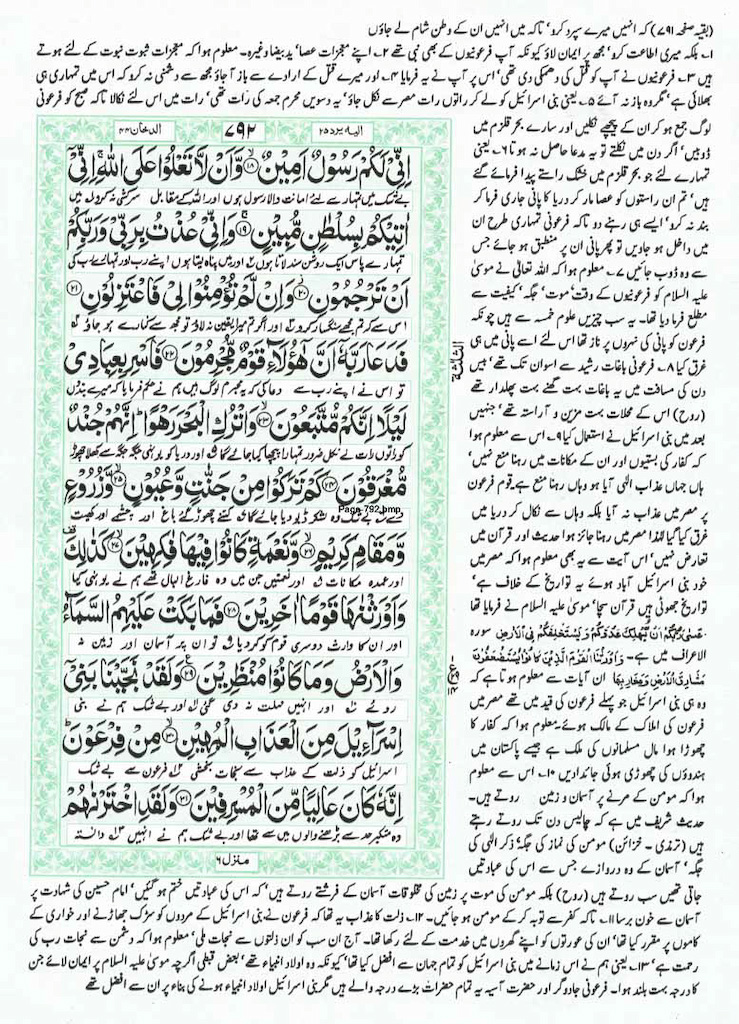 (بقیہ صفحہ ۷۹۱) کہ انہیں میرے سپرد کرو' تاکہ میں انہیں ان کے وطن شام لے جاؤں
۱۔ بلکہ میری اطاعت کرو' مجھ پر ایمان لاؤ کیونکہ آپ فرعونیوں کے بھی نبی تھے ۲۔ اپنے معجزات عصا' ید بیضا وغیرہ۔ معلوم ہوا کہ معجزات ثبوت نبوت کے لئے ہوتے
ہیں ۳۔ فرعونیوں نے آپ کو قتل کی دھمکی دی تھی' اس پر آپ نے یہ فرمایا ۴۔ اور میرے قتل کے ارادے سے باز آ جاؤ مجھ سے دشمنی نہ کرو کہ اس میں تمہاری ہی
بھلائی ہے' مگر وہ باز نہ آئے ۵۔ یعنی بنی اسرائیل کو لے کر راتوں رات مصر سے نکل جاؤ' یہ دسویں محرم جمعہ کی رات تھی' رات میں اس لئے نکالا تاکہ صبح کو فرعونی
لوگ جمع ہو کر ان کے پیچھے نکلیں اور سارے بحر قلزم میں
ڈوبیں' اگر دن میں نکلتے تو یہ مدعا حاصل نہ ہوتا ۶۔ یعنی
تمہارے لئے جو بحر قلزم میں خشک راستے پیدا فرمائے گئے
ہیں' تم ان راستوں کو عصا مار کر دریا کا پانی جاری فرما کر
بند نہ کرو' ایسے ہی رہنے دو تاکہ فرعونی تمہاری طرح ان
میں داخل ہو جاویں تو پھر پانی ان پر منطبق ہو جائے جس
سے وہ ڈوب جائیں ۷۔ معلوم ہوا کہ اللہ تعالیٰ نے موسیٰ
علیہ السلام کو فرعونیوں کے وقت' موت' جگہ' کیفیت سے
مطلع فرما دیا تھا۔ یہ سب چیزیں علوم خمسہ سے ہیں چونکہ
فرعون کو پانی کی نہروں پر ناز تھا اس لئے اسے پانی میں ہی
غرق کیا ۸۔ فرعونی باغات رشید سے اسوان تک تھے' بیس
دن کی مسافت میں یہ باغات بہت گھنے بہت پھلدار تھے
(روح) اس کے محلات بہت مزین و آراستہ تھے' جنہیں
بعد میں بنی اسرائیل نے استعمال کیا ۹۔ اس سے معلوم ہوا
کہ کفار کی بستیوں اور ان کے مکانات میں رہنا منع نہیں'
ہاں جہاں عذاب الٰہی آیا ہو وہاں رہنا منع ہے۔ قوم فرعون
پر مصر میں عذاب نہ آیا بلکہ وہاں سے نکال کر دریا میں
غرق کیا گیا لہٰذا مصر میں رہنا جائز ہوا حدیث اور قرآن میں
تعارض نہیں' اس آیت سے یہ بھی معلوم ہوا کہ مصر میں
خود بنی اسرائیل آباد ہوئے یہ تواریخ کے خلاف ہے'
تواریخ جھوٹی ہیں قرآن سچا' موسیٰ علیہ السلام نے فرمایا تھا
عَسٰی رَبُّکُمْ اَنْ یُّہْلِکَ عَدُوَّکُمْ وَیَسْتَخْلِفَکُمْ فِی الْاَرْضِ سورہ
الاعراف میں ہے۔ وَاَوْرَثْنَا الْقَوْمَ الَّذِیْنَ کَانُوْا یُسْتَضْعَفُوْنَ
مَشَارِقَ الْاَرْضِ وَمَغَارِبَہَا ان آیات سے معلوم ہوتا ہے کہ
وہ ہی بنی اسرائیل جو پہلے فرعون کی قید میں تھے مصر میں
فرعون کی املاک کے مالک ہوئے۔ معلوم ہوا کہ کفار کا
چھوڑا ہوا مال مسلمانوں کی ملک ہے جیسے پاکستان میں
ہندوؤں کی چھوڑی ہوئی جائدادیں ۱۰۔ اس سے معلوم
ہوا کہ مومن کے مرنے پر آسمان و زمین روتے ہیں۔
حدیث شریف میں ہے کہ چالیس دن تک روتے رہتے
ہیں (ترمذی۔ خزائن) مومن کی نماز کی جگہ' ذکر الٰہی کی
جگہ' آسمان کے وہ دروازے جس سے اس کی عبادتیں
الیہ یرد ۲۵
۷۹۲
الدخان ۴۴
اِنِّیْ لَکُمْ رَسُوْلٌ اَمِیْنٌ ﴿۱۸﴾ وَّاَنْ لَّا تَعْلُوْا عَلَی اللّٰہِ اِنِّیْۤ
بے شک میں تمہارے لئے امانت والا رسول ہوں اور اللہ کے مقابل سرکشی نہ کرو میں
اٰتِیْکُمْ بِسُلْطٰنٍ مُّبِیْنٍ ﴿۱۹﴾ وَاِنِّیْ عُذْتُ بِرَبِّیْ وَرَبِّکُمْ
تمہارے پاس ایک روشن سند لاتا ہوں اور میں پناہ لیتا ہوں اپنے رب اور تمہارے رب کی
اَنْ تَرْجُمُوْنِ ﴿۲۰﴾ وَاِنْ لَّمْ تُؤْمِنُوْا لِیْ فَاعْتَزِلُوْنِ ﴿۲۱﴾
اس سے کہ تم مجھے سنگسار کرو اور اگر تم میرا یقین نہ لاؤ تو مجھ سے کنارے ہو جاؤ
فَدَعَا رَبَّہٗۤ اَنَّ ہٰۤؤُلَآءِ قَوْمٌ مُّجْرِمُوْنَ ﴿۲۲﴾ فَاَسْرِ بِعِبَادِیْ
تو اس نے اپنے رب سے دعا کی کہ یہ مجرم لوگ ہیں ہم نے حکم فرمایا کہ میرے بندوں
لَیْلًا اِنَّکُمْ مُّتَّبَعُوْنَ ﴿۲۳﴾ وَاتْرُکِ الْبَحْرَ رَہْوًا ؕ اِنَّہُمْ جُنْدٌ
کو راتوں رات لے نکل ضرور تمہارا پیچھا کیا جائے گا اور دریا کو یونہی جگہ جگہ سے کھلا چھوڑ
مُّغْرَقُوْنَ ﴿۲۴﴾ کَمْ تَرَکُوْا مِنْ جَنّٰتٍ وَّعُیُوْنٍ ﴿۲۵﴾ وَّزُرُوْعٍ
دے بے شک وہ لشکر ڈبو دیا جائے گا کتنے چھوڑ گئے باغ اور چشمے اور کھیت
Page-792.bmp
وَّمَقَامٍ کَرِیْمٍ ﴿۲۶﴾ وَّنَعْمَۃٍ کَانُوْا فِیْہَا فٰکِہِیْنَ ﴿۲۷﴾ کَذٰلِکَ
اور عمدہ مکانات اور نعمتیں جن میں وہ فارغ البال تھے ہم نے یونہی کیا
وَاَوْرَثْنٰہَا قَوْمًا اٰخَرِیْنَ ﴿۲۸﴾ فَمَا بَکَتْ عَلَیْہِمُ السَّمَآءُ
اور ان کا وارث دوسری قوم کو کر دیا تو ان پر آسمان اور زمین نہ
وَالْاَرْضُ وَمَا کَانُوْا مُنْظَرِیْنَ ﴿۲۹﴾ وَلَقَدْ نَجَّیْنَا بَنِیْۤ
روئے اور انہیں مہلت نہ دی گئی اور بے شک ہم نے بنی
اِسْرَآءِیْلَ مِنَ الْعَذَابِ الْمُہِیْنِ ﴿۳۰﴾ مِنْ فِرْعَوْنَ ؕ
اسرائیل کو ذلت کے عذاب سے نجات بخشی فرعون سے بے شک
اِنَّہٗ کَانَ عَالِیًا مِّنَ الْمُسْرِفِیْنَ ﴿۳۱﴾ وَلَقَدِ اخْتَرْنٰہُمْ
وہ متکبر حد سے بڑھنے والوں میں سے تھا اور بے شک ہم نے انہیں دانستہ
منزل ۶
جاتی تھیں سب روتے ہیں (روح) بلکہ مومن کی موت پر زمین کی مخلوقات آسمان کے فرشتے روتے ہیں' کہ اس کی عبادتیں ختم ہو گئیں' امام حسین کی شہادت پر
آسمان سے خون برسا ۱۱۔ تاکہ کفر سے توبہ کر کے مومن ہو جائیں۔ ۱۲۔ ذلت کا عذاب یہ تھا کہ فرعون نے بنی اسرائیل کے مردوں کو سڑک جھاڑنے اور خواری کے
کاموں پر مقرر کیا تھا' ان کی عورتوں کو اپنے گھروں میں خدمت کے لئے رکھا تھا۔ آج ان سب کو ان ذلتوں سے نجات ملی' معلوم ہوا کہ دشمن سے نجات رب کی
رحمت ہے' ۱۳۔ یعنی ہم نے اس زمانے میں بنی اسرائیل کو تمام جہان سے افضل کیا تھا' کیونکہ وہ اولاد انبیاء تھے' بعض قبطی اگرچہ موسیٰ علیہ السلام پر ایمان لائے جن
کا درجہ بہت بلند ہوا۔ فرعونی جادوگر اور حضرت آسیہ یہ تمام حضرات بڑے درجہ والے ہیں مگر بنی اسرائیل اولاد انبیاء ہونے کی بناء پر ان سے افضل تھے